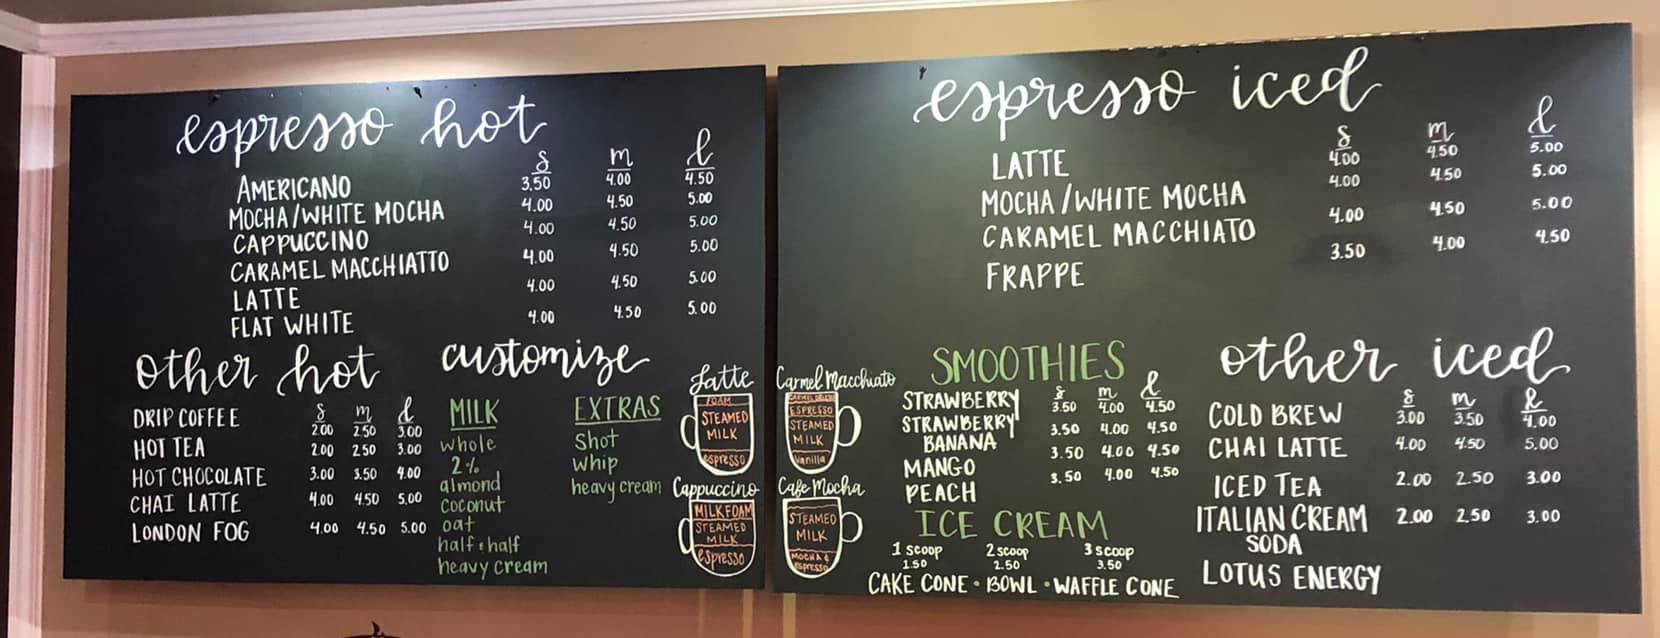 espresso hot
s m l
AMERICANO 3.50 4.00 4.50
MOCHA/WHITE MOCHA 4.00 4.50 5.00
CAPPUCCINO 4.00 4.50 5.00
CARAMEL MACCHIATTO 4.00 4.50 5.00
LATTE 4.00 4.50 5.00
FLAT WHITE 4.00 4.50 5.00
other hot
s m l
DRIP COFFEE 2.00 2.50 3.00
HOT TEA 2.00 2.50 3.00
HOT CHOCOLATE 3.00 3.50 4.00
CHAI LATTE 4.00 4.50 5.00
LONDON FOG 4.00 4.50 5.00
customize
MILK
whole
2%
almond
coconut
oat
half & half
heavy cream
EXTRAS
Shot
whip
heavy cream
Latte
FOAM
STEAMED
MILK
espresso
Cappuccino
MILK FOAM
STEAMED
MILK
espresso
espresso iced
s m l
LATTE 4.00 4.50 5.00
MOCHA/WHITE MOCHA 4.00 4.50 5.00
CARAMEL MACCHIATO 4.00 4.50 5.00
FRAPPE 3.50 4.00 4.50
Carmel Macchiato
ESPRESSO
STEAMED
MILK
Vanilla
Cafe Mocha
STEAMED
MILK
MOCHA &
espresso
SMOOTHIES
s m l
STRAWBERRY 3.50 4.00 4.50
STRAWBERRY 3.50 4.00 4.50
BANANA
MANGO 3.50 4.00 4.50
PEACH 3.50 4.00 4.50
ICE CREAM
1 scoop 2 scoop 3 scoop
1.50 2.50 3.50
CAKE CONE • BOWL • WAFFLE CONE
other iced
s m l
COLD BREW 3.00 3.50 4.00
CHAI LATTE 4.00 4.50 5.00
ICED TEA 2.00 2.50 3.00
ITALIAN CREAM 2.00 2.50 3.00
SODA
LOTUS ENERGY